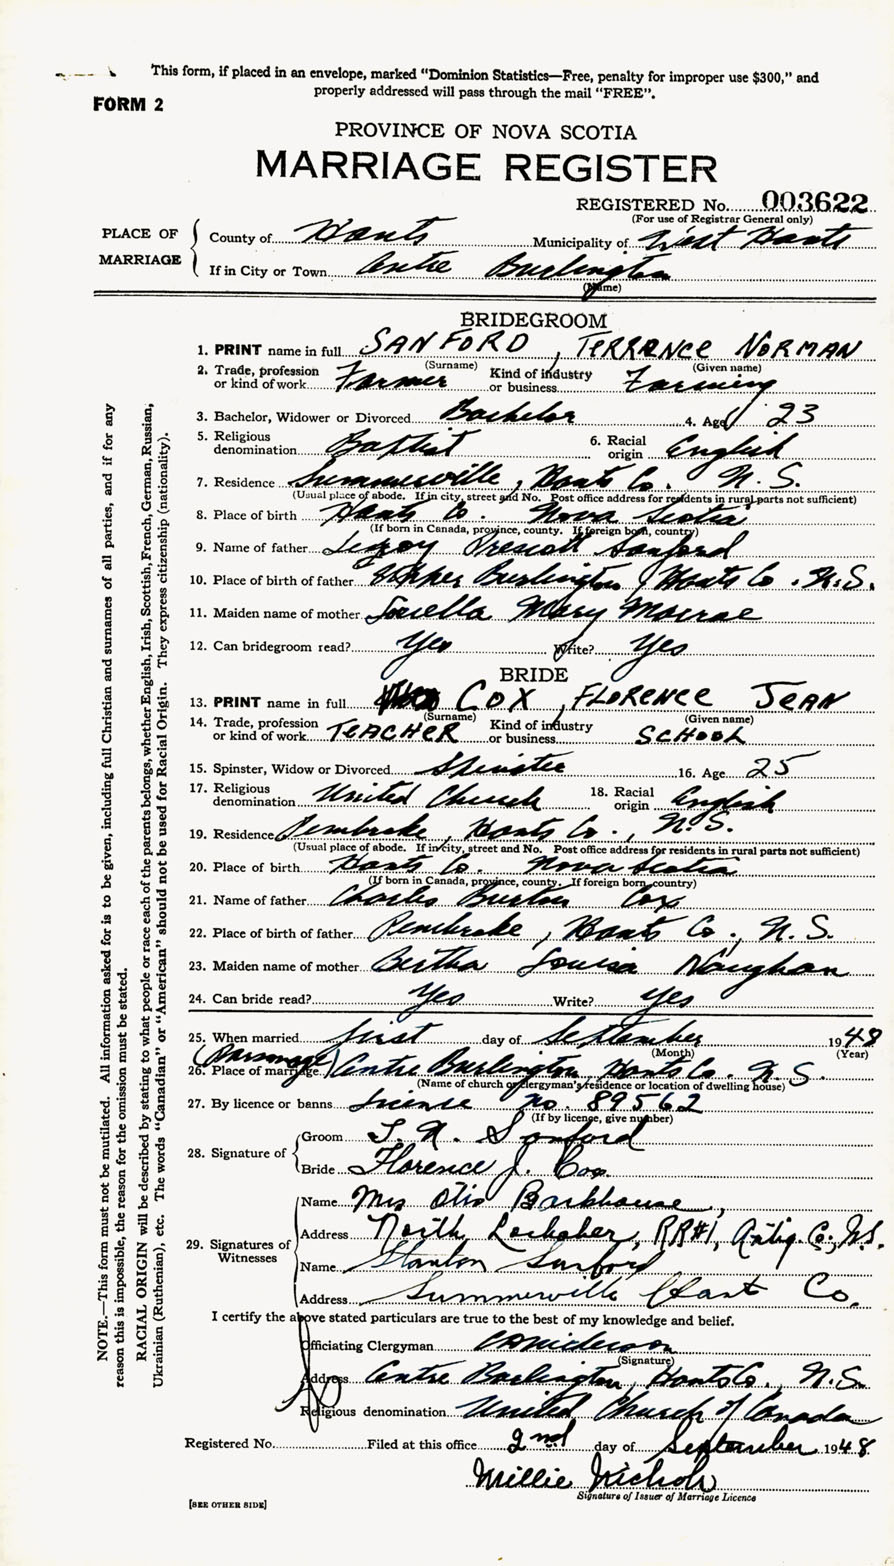 This form, if placed in an envelope, marked "Dominion Statistics—Free, penalty for improper use $300," and
properly addressed will pass through the mail "FREE".
FORM 2
PROVINCE OF NOVA SCOTIA
MARRIAGE REGISTER
REGISTERED No. 003622
(For use of Registrar General only)
PLACE OF MARRIAGE
County of Hants Municipality of West Hants
If in City or Town Centre Burlington
(Name)
BRIDEGROOM
1. PRINT name in full SANFORD, TERRANCE NORMAN
(Surname) (Given name)
2. Trade, profession or kind of work Farmer Kind of industry or business Farming
3. Bachelor, Widower or Divorced Bachelor 4. Age 23
5. Religious denomination Baptist 6. Racial origin English
7. Residence Summerville, Hants Co. N.S.
(Usual place of abode. If in city, street and No. Post office address for residents in rural parts not sufficient)
8. Place of birth Hants Co. Nova Scotia
(If born in Canada, province, county. If foreign born, country)
9. Name of father Leroy Prescott Sanford
10. Place of birth of father Upper Burlington, Hants Co. N.S.
11. Maiden name of mother Louella Mary Monroe
12. Can bridegroom read? Yes Write? Yes
BRIDE
13. PRINT name in full COX, FLORENCE JEAN
(Surname) (Given name)
14. Trade, profession or kind of work TEACHER Kind of industry or business SCHOOL
15. Spinster, Widow or Divorced Spinster 16. Age 25
17. Religious denomination United Church 18. Racial origin English
19. Residence Pembroke, Hants Co., N.S.
(Usual place of abode. If in city, street and No. Post office address for residents in rural parts not sufficient)
20. Place of birth Hants Co. Nova Scotia
(If born in Canada, province, county. If foreign born country)
21. Name of father Charles Burton Cox
22. Place of birth of father Pembroke, Hants Co., N.S.
23. Maiden name of mother Bertha Louisa Vaughan
24. Can bride read? Yes Write? yes
25. When married first day of September 1948
(Month) (Year)
(Parsonage)
26. Place of marriage Centre Burlington Hants Co. N.S.
(Name of church or clergyman's residence or location of dwelling house)
27. By licence or banns License no. 89562
(If by licence, give number)
28. Signature of
Groom T. N. Sanford
Bride Florence J. Cox
29. Signatures of Witnesses
Name Mrs Otis Barkhouse,
Address North Lochaber, RR#1, Antig. Co., N.S.
Name Stanton Sanford
Address Summerville Hant Co.
I certify the above stated particulars are true to the best of my knowledge and belief.
Officiating Clergyman
(Signature)
Address Centre Burlington, Hants Co., N.S.
Religious denomination United Church of Canada
Registered No. Filed at this office 2nd day of September 1948
Millie Nichols
Signature of Issuer of Marriage Licence
[SEE OTHER SIDE]
NOTE.—This form must not be mutilated. All information asked for is to be given, including full Christian and surnames of all parties, and if for any
reason this is impossible, the reason for the omission must be stated.
RACIAL ORIGIN will be described by stating to what people or race each of the parents belongs, whether English, Irish, Scottish, French, German, Russian,
Ukrainian (Ruthenian), etc. The words "Canadian" or "American" should not be used for Racial Origin. They express citizenship (nationality).